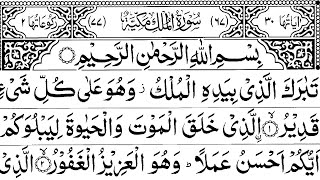 اٰیَاتُهَا ٣٠ (٦٧) سُوْرَةُ الْمُلْكِ مَكِّیَّةٌ (٧٧) رُكُوْعَاتُهَا ٢
بِسْمِ اللهِ الرَّحْمٰنِ الرَّحِیْمِ
تَبٰرَكَ الَّذِیْ بِیَدِهِ الْمُلْكُ ز وَهُوَ عَلٰی كُلِّ شَیْءٍ
قَدِیْرُ ۨ ۝١ الَّذِیْ خَلَقَ الْمَوْتَ وَالْحَیٰوةَ لِیَبْلُوَكُمْ
اَیُّكُمْ اَحْسَنُ عَمَلًا ؕ وَهُوَ الْعَزِیْزُ الْغَفُوْرُ ۝٢ الَّذِیْ